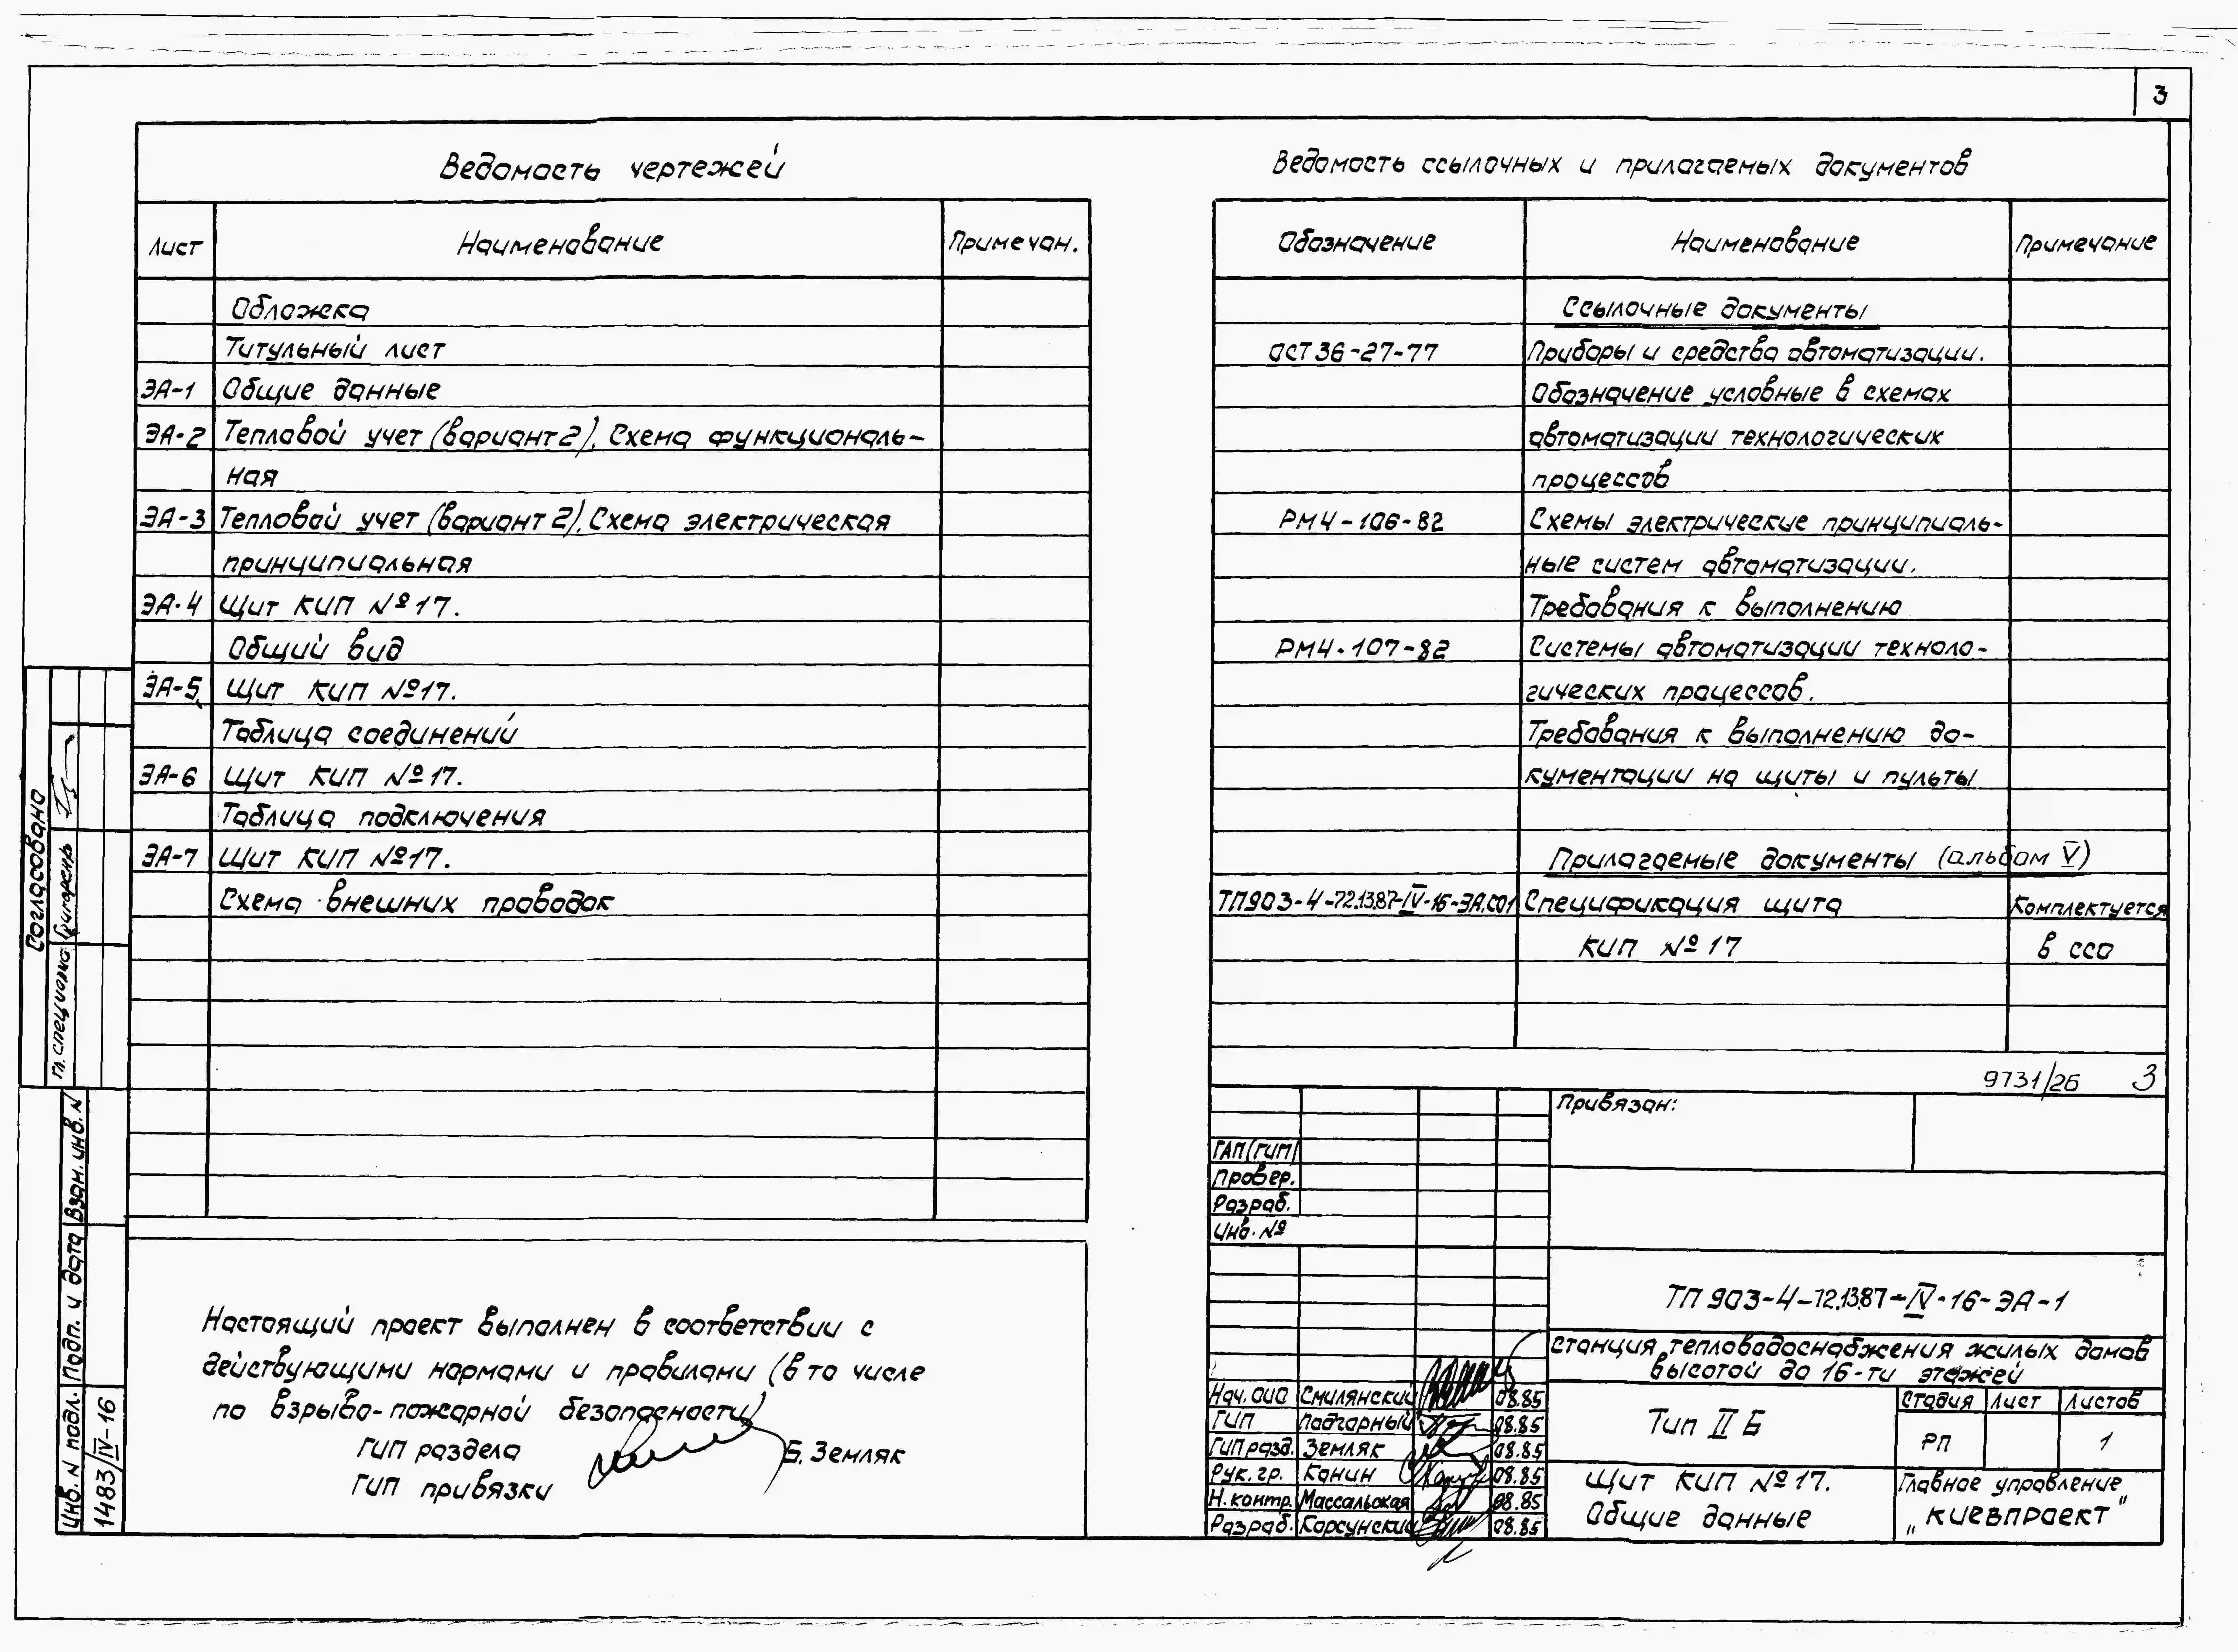 3
Ведомость чертежей
Лист Наименование Примечан.
Обложка
Титульный лист
ЭА-1 Общие данные
ЭА-2 Тепловой учет (вариант 2). Схема функциональ-
ная
ЭА-3 Тепловой учет (вариант 2). Схема электрическая
принципиальная
ЭА-4 Щит КИП №17.
Общий вид
ЭА-5 Щит КИП №17.
Таблица соединений
ЭА-6 Щит КИП №17.
Таблица подключения
ЭА-7 Щит КИП №17.
Схема внешних проводок
Настоящий проект выполнен в соответствии с
действующими нормами и правилами (в то числе
по взрыво-пожарной безопасности)
ГИП раздела Б. Земляк
ГИП привязки
Ведомость ссылочных и прилагаемых документов
Обозначение Наименование Примечание
Ссылочные документы
ОСТ 36-27-77 Приборы и средства автоматизации.
Обозначение условные в схемах
автоматизации технологических
процессов
РМ4-106-82 Схемы электрические принципиаль-
ные систем автоматизации.
Требования к выполнению
РМ4-107-82 Системы автоматизации техноло-
гических процессов.
Требования к выполнению до-
кументации на щиты и пульты
Прилагаемые документы (альбом V)
ТП903-4-72.13.87-IV-16-ЭА.СО1 Спецификация щита Комплектуется
КИП №17 в ССО
9731/26 3
Привязан:
ГАП(ГИП)
Провер.
Разраб.
Инв. №
ТП 903-4-72.13.87-IV-16-ЭА-1
Станция тепловодоснабжения жилых домов
высотой до 16-ти этажей
Нач. ОИО Смилянский 08.85
ГИП Подгорный 08.85
ГИП разд. Земляк 08.85
Рук. гр. Канин 08.85
Н. контр. Массальская 08.85
Разраб. Корсунский 08.85
Тип II Б
Стадия Лист Листов
РП 1
Щит КИП №17.
Общие данные
Главное управление
„Киевпроект"
Согласовано
Гл. специал.
Инв. N подл. Подп. и дата Взам. инв. N
1483/IV-16